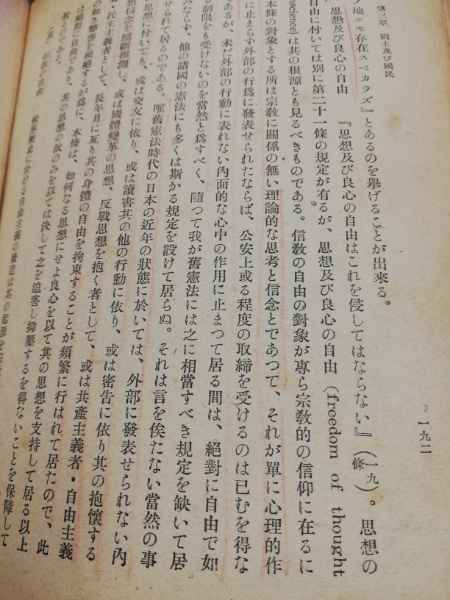 第二章 國土及國民
一九二
ノ地ニモ存在スベカラズ』とあるのを擧げることが出來る。
思想及良心の自由 『思想及び良心の自由はこれを侵してはならない』(一九條)。思想の
自由に付いては別に第二十一條の規定が有るが、思想及び良心の自由 (freedom of thought
science)は其の根源とも見るべきものである。信敎の自由の對象が專ら宗敎的の信仰に在るに
本條の對象とする所は宗敎に關係の無い理論的な思考と信念とであつて、それが單に心理的作
に止まらず外部の行爲に發表せられたならば、公安上或る程度の取締を受けるのは已むを得な
あるが、未だ外部の行動に表れない內面的な心中の作用に止まつて居る間は、絕對に自由で如
る制限をも受けないのを當然と爲すべく、隨つて我が舊憲法には之に相當すべき規定を缺いて居
みならず、他の諸國の憲法にも多くは斯かる規定を設けて居らぬ。それは言を俟たない當然の事
せられて居るのである。唯舊憲法時代の日本の近年の狀態に於いては、外部に發表せられない內
思想に付いても、或は交友に依り、或は讀書其の他の行動に依り、或は密吿に依り其の抱懷する
想信念を臆斷推測し、或は國體變革の思想、反戰思想を抱く者として、或は共產主義者・自由主義
・民主主義者として、長年月に亙り其の身體の自由を拘束することが頻繁に行はれて居たので、此
の爲に、本條は、如何なる思想にせよ良心を以て其の思想を支持して居る以上
は絕對に自由である。其の思想の故のみを以ては決して之を迫害し抑壓するを得ないことを保障して